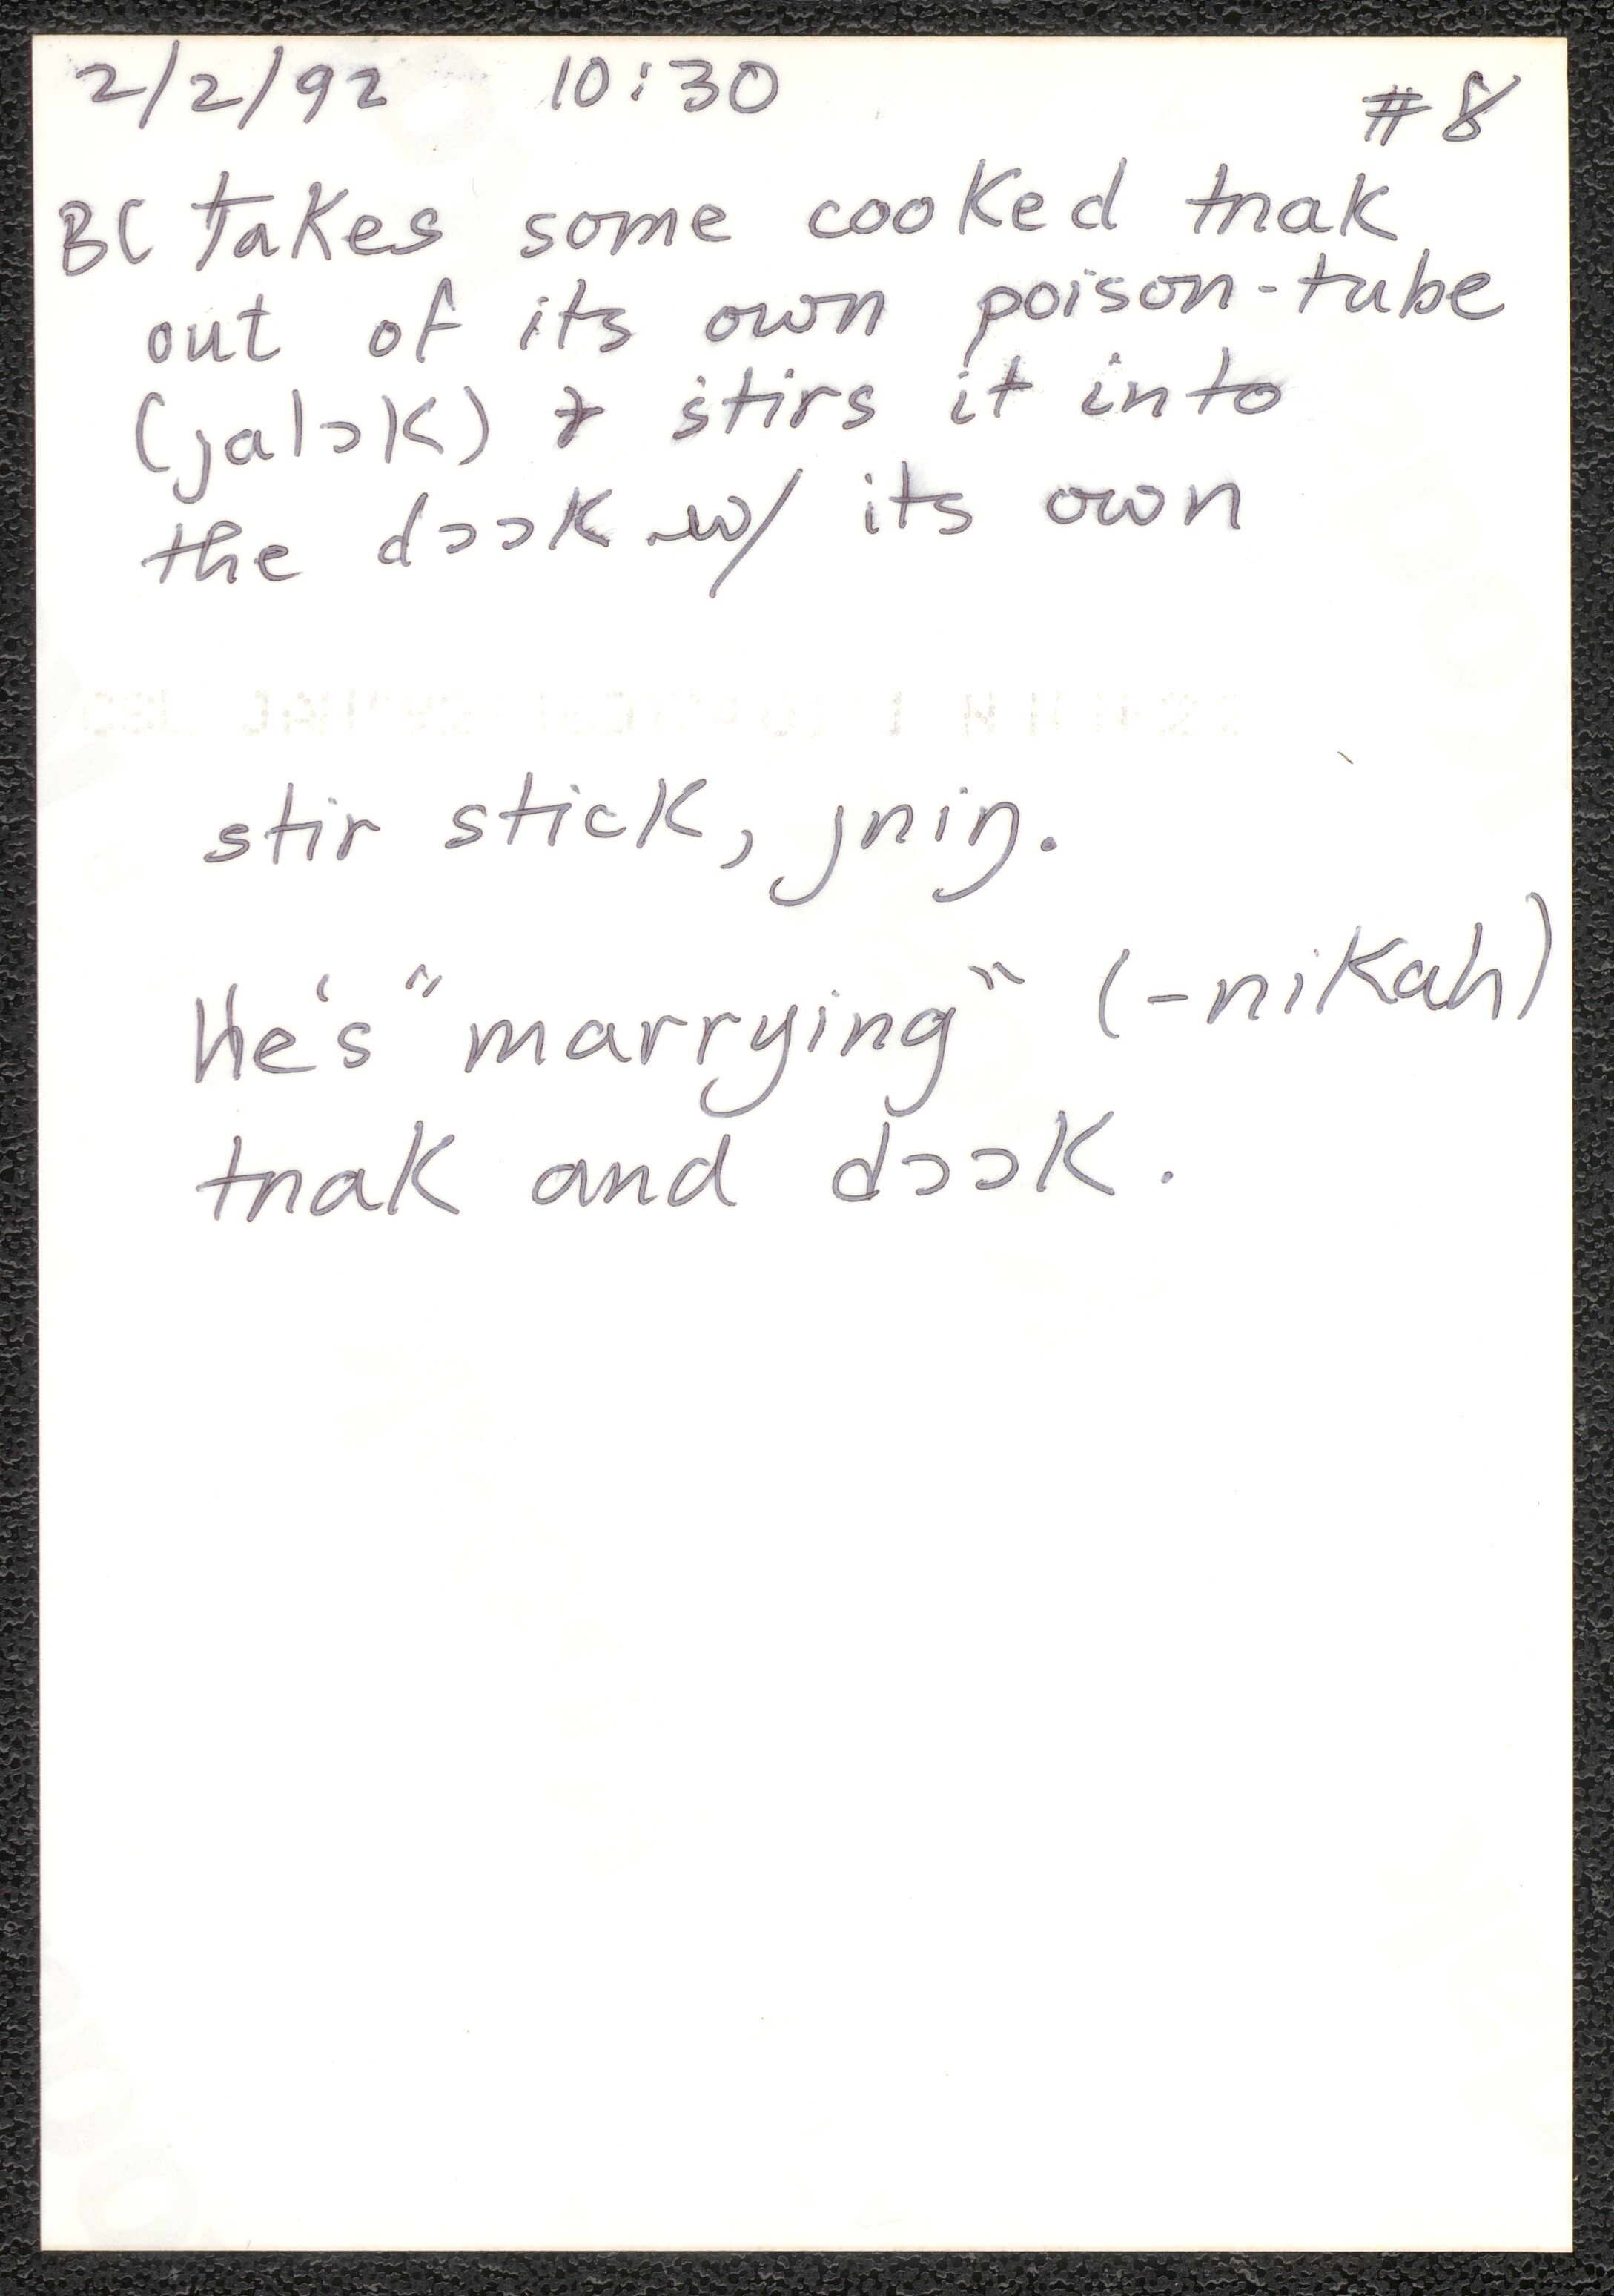 2/2/92 10:30 #8
BC takes some cooked tnak
out of its own poison-tube
(jalɔk) & stirs it into
the dɔɔk w/ its own
stir stick, jniŋ.
He's "marrying" (-nikah)
tnak and dɔɔk.